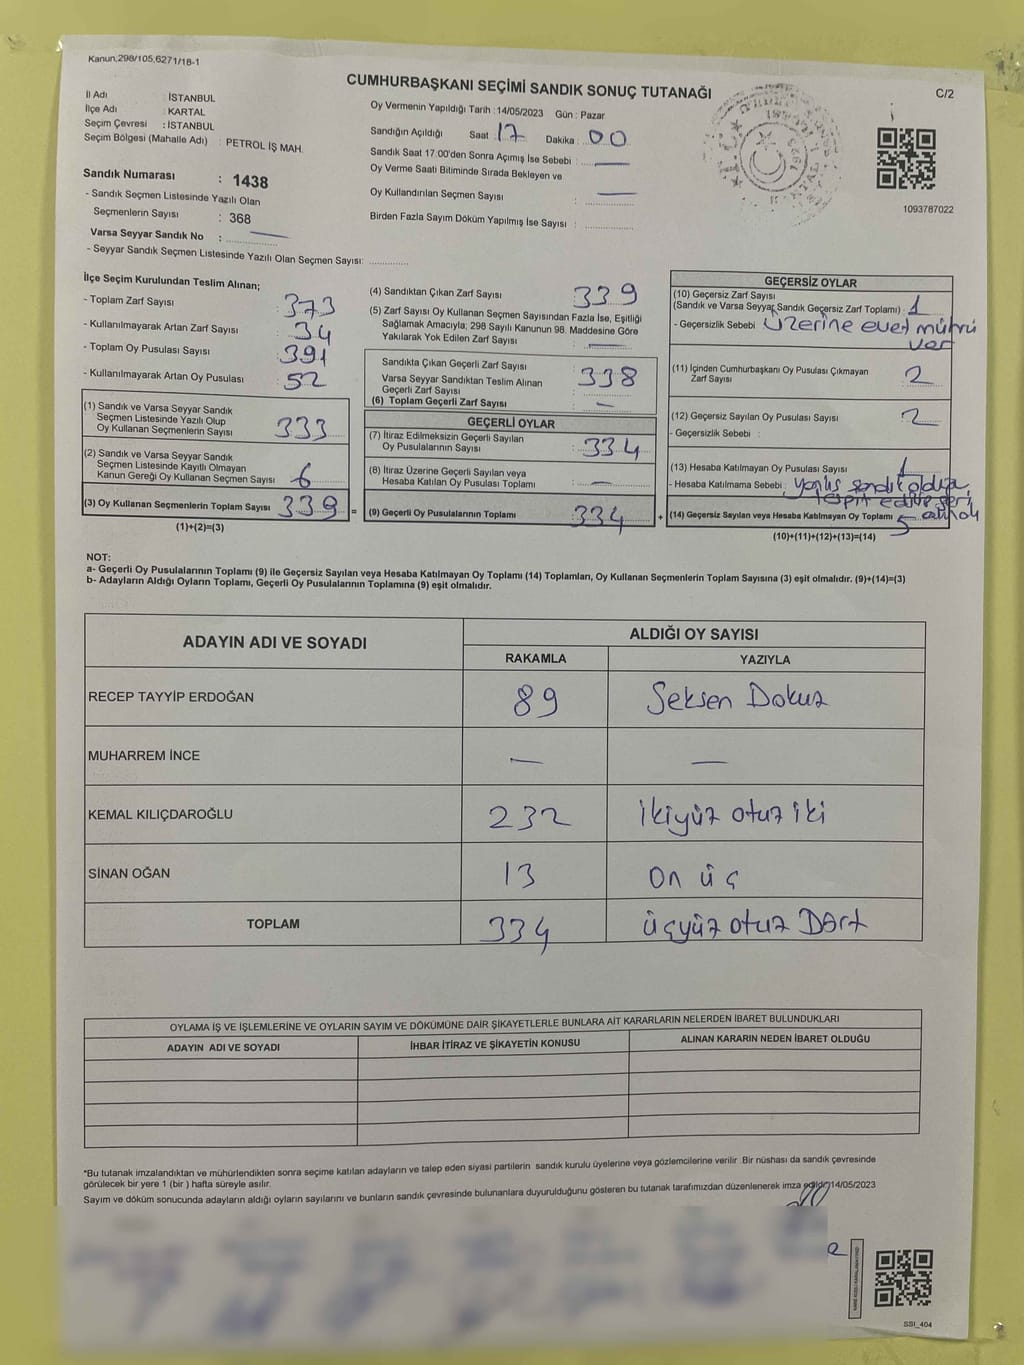 Kanun,298/105,6271/18-1
CUMHURBAŞKANI SEÇİMİ SANDIK SONUÇ TUTANAĞI
C/2
İl Adı : İSTANBUL
İlçe Adı : KARTAL
Seçim Çevresi : İSTANBUL
Seçim Bölgesi (Mahalle Adı) : PETROL İŞ MAH.
Sandık Numarası : 1438
- Sandık Seçmen Listesinde Yazılı Olan
Seçmenlerin Sayısı : 368
Varsa Seyyar Sandık No : —
- Seyyar Sandık Seçmen Listesinde Yazılı Olan Seçmen Sayısı: ..............
Oy Vermenin Yapıldığı Tarih : 14/05/2023 Gün : Pazar
Sandığın Açıldığı Saat 17 Dakika : 00
Sandık Saat 17.00'den Sonra Açımış İse Sebebi : —
Oy Verme Saati Bitiminde Sırada Bekleyen ve
Oy Kullandırılan Seçmen Sayısı : —
Birden Fazla Sayım Döküm Yapılmış İse Sayısı : ..............
1093787022
İlçe Seçim Kurulundan Teslim Alınan;
- Toplam Zarf Sayısı : 373
- Kullanılmayarak Artan Zarf Sayısı : 34
- Toplam Oy Pusulası Sayısı : 391
- Kullanılmayarak Artan Oy Pusulası : 52
(1) Sandık ve Varsa Seyyar Sandık
Seçmen Listesinde Yazılı Olup
Oy Kullanan Seçmenlerin Sayısı 333
(2) Sandık ve Varsa Seyyar Sandık
Seçmen Listesinde Kayıtlı Olmayan
Kanun Gereği Oy Kullanan Seçmen Sayısı 6
(3) Oy Kullanan Seçmenlerin Toplam Sayısı 339 =
(1)+(2)=(3)
(4) Sandıktan Çıkan Zarf Sayısı : 339
(5) Zarf Sayısı Oy Kullanan Seçmen Sayısından Fazla İse, Eşitliği
Sağlamak Amacıyla; 298 Sayılı Kanunun 98. Maddesine Göre
Yakılarak Yok Edilen Zarf Sayısı : —
Sandıkta Çıkan Geçerli Zarf Sayısı : 338
Varsa Seyyar Sandıktan Teslim Alınan
Geçerli Zarf Sayısı
(6) Toplam Geçerli Zarf Sayısı : —
GEÇERLİ OYLAR
(7) İtiraz Edilmeksizin Geçerli Sayılan
Oy Pusulalarının Sayısı : 334
(8) İtiraz Üzerine Geçerli Sayılan veya
Hesaba Katılan Oy Pusulaları Toplamı : —
(9) Geçerli Oy Pusulalarının Toplamı : 334 +
GEÇERSİZ OYLAR
(10) Geçersiz Zarf Sayısı
(Sandık ve Varsa Seyyar Sandık Geçersiz Zarf Toplamı) : 1
- Geçersizlik Sebebi : Üzerine evet mührü
var
(11) İçinden Cumhurbaşkanı Oy Pusulası Çıkmayan
Zarf Sayısı : 2
(12) Geçersiz Sayılan Oy Pusulası Sayısı : 2
- Geçersizlik Sebebi :
(13) Hesaba Katılmayan Oy Pusulası Sayısı : 1
- Hesaba Katılmama Sebebi : Yanlış sandık
tespit
(14) Geçersiz Sayılan veya Hesaba Katılmayan Oy Toplamı : 5
(10)+(11)+(12)+(13)=(14)
NOT:
a- Geçerli Oy Pusulalarının Toplamı (9) ile Geçersiz Sayılan veya Hesaba Katılmayan Oy Toplamı (14) Toplamları, Oy Kullanan Seçmenlerin Toplam Sayısına (3) eşit olmalıdır. (9)+(14)=(3)
b- Adayların Aldığı Oyların Toplamı, Geçerli Oy Pusulalarının Toplamına (9) eşit olmalıdır.
ADAYIN ADI VE SOYADI
ALDIĞI OY SAYISI
RAKAMLA YAZIYLA
RECEP TAYYİP ERDOĞAN 89 Seksen Dokuz
MUHARREM İNCE — —
KEMAL KILIÇDAROĞLU 232 İkiyüz otuz iki
SİNAN OĞAN 13 On üç
TOPLAM 334 üçyüz otuz Dört
OYLAMA İŞ VE İŞLEMLERİNE VE OYLARIN SAYIM VE DÖKÜMÜNE DAİR ŞİKAYETLERLE BUNLARA AİT KARARLARIN NELERDEN İBARET BULUNDUKLARI
ADAYIN ADI VE SOYADI İHBAR İTİRAZ VE ŞİKAYETİN KONUSU ALINAN KARARIN NEDEN İBARET OLDUĞU
*Bu tutanak imzalandıktan ve mühürlendikten sonra seçime katılan adayların ve talep eden siyasi partilerin sandık kurulu üyelerine veya gözlemcilerine verilir. Bir nüshası da sandık çevresinde
görülecek bir yere 1 (bir ) hafta süreyle asılır.
Sayım ve döküm sonucunda adayların aldığı oyların sayılarını ve bunların sandık çevresinde bulunanlara duyurulduğunu gösteren bu tutanak tarafımızdan düzenlenerek imza edildi. 14/05/2023
SSI_404